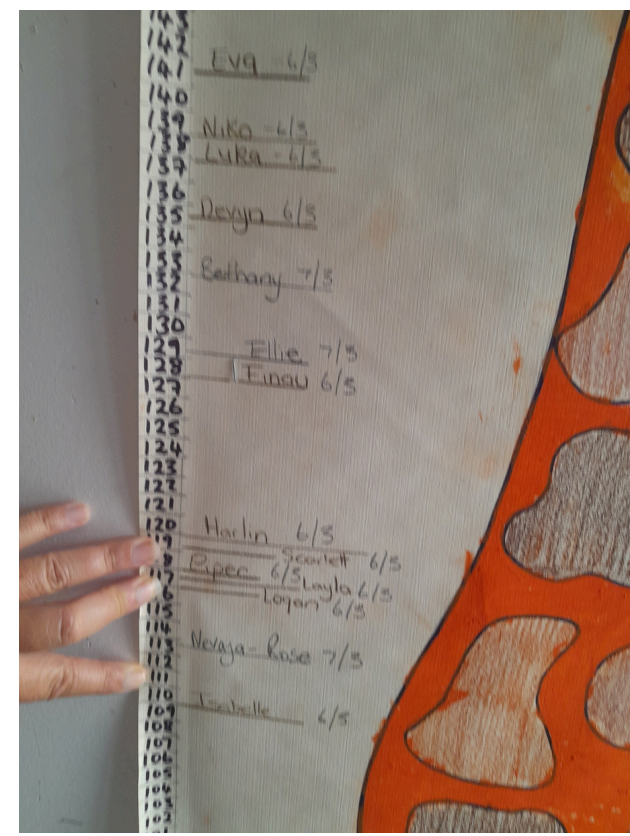 143
142
Eva - 6/5
141
140
139
Niko - 6/5
138
Luka - 6/5
137
136
135
Devyn 6/5
134
133
Bethany 7/5
132
131
130
129
Ellie 7/5
128
Finau 6/5
127
126
125
124
123
122
121
120
Harlin 6/5
119
Scarlett 6/5
118
Piper 6/5
117
Layla 6/5
116
Logan 6/5
115
114
113
Nevaja-Rose 7/5
112
111
110
109
Isabelle 6/5
108
107
106
105
104
103
102